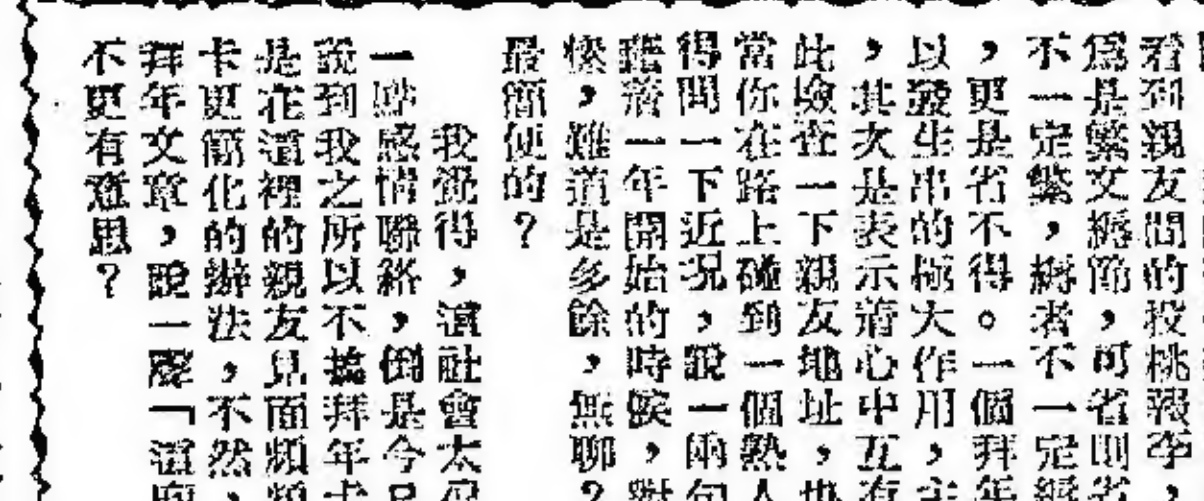 看到親友間的投桃報李，
爲是繁文縟節，可省則省
不一定繁，縟者不一定縟
，更是省不得。一個拜年
以發生出的極大作用，主
，其次是表示着心中互有
此檢查一下親友地址，也
當你在路上碰到一個熟人
得問一下近况，說一兩句
着一年開始的時候，對
，難道是多餘，無聊？
最簡便的？
我覺得，這社會太
一點感情聯絡，倒是今
說到我之所以不搞拜年卡
是在這裡的親友見面頻頻
卡更簡化的辦法，不然，
拜年文章，說一聲「這廂
不更有意思？